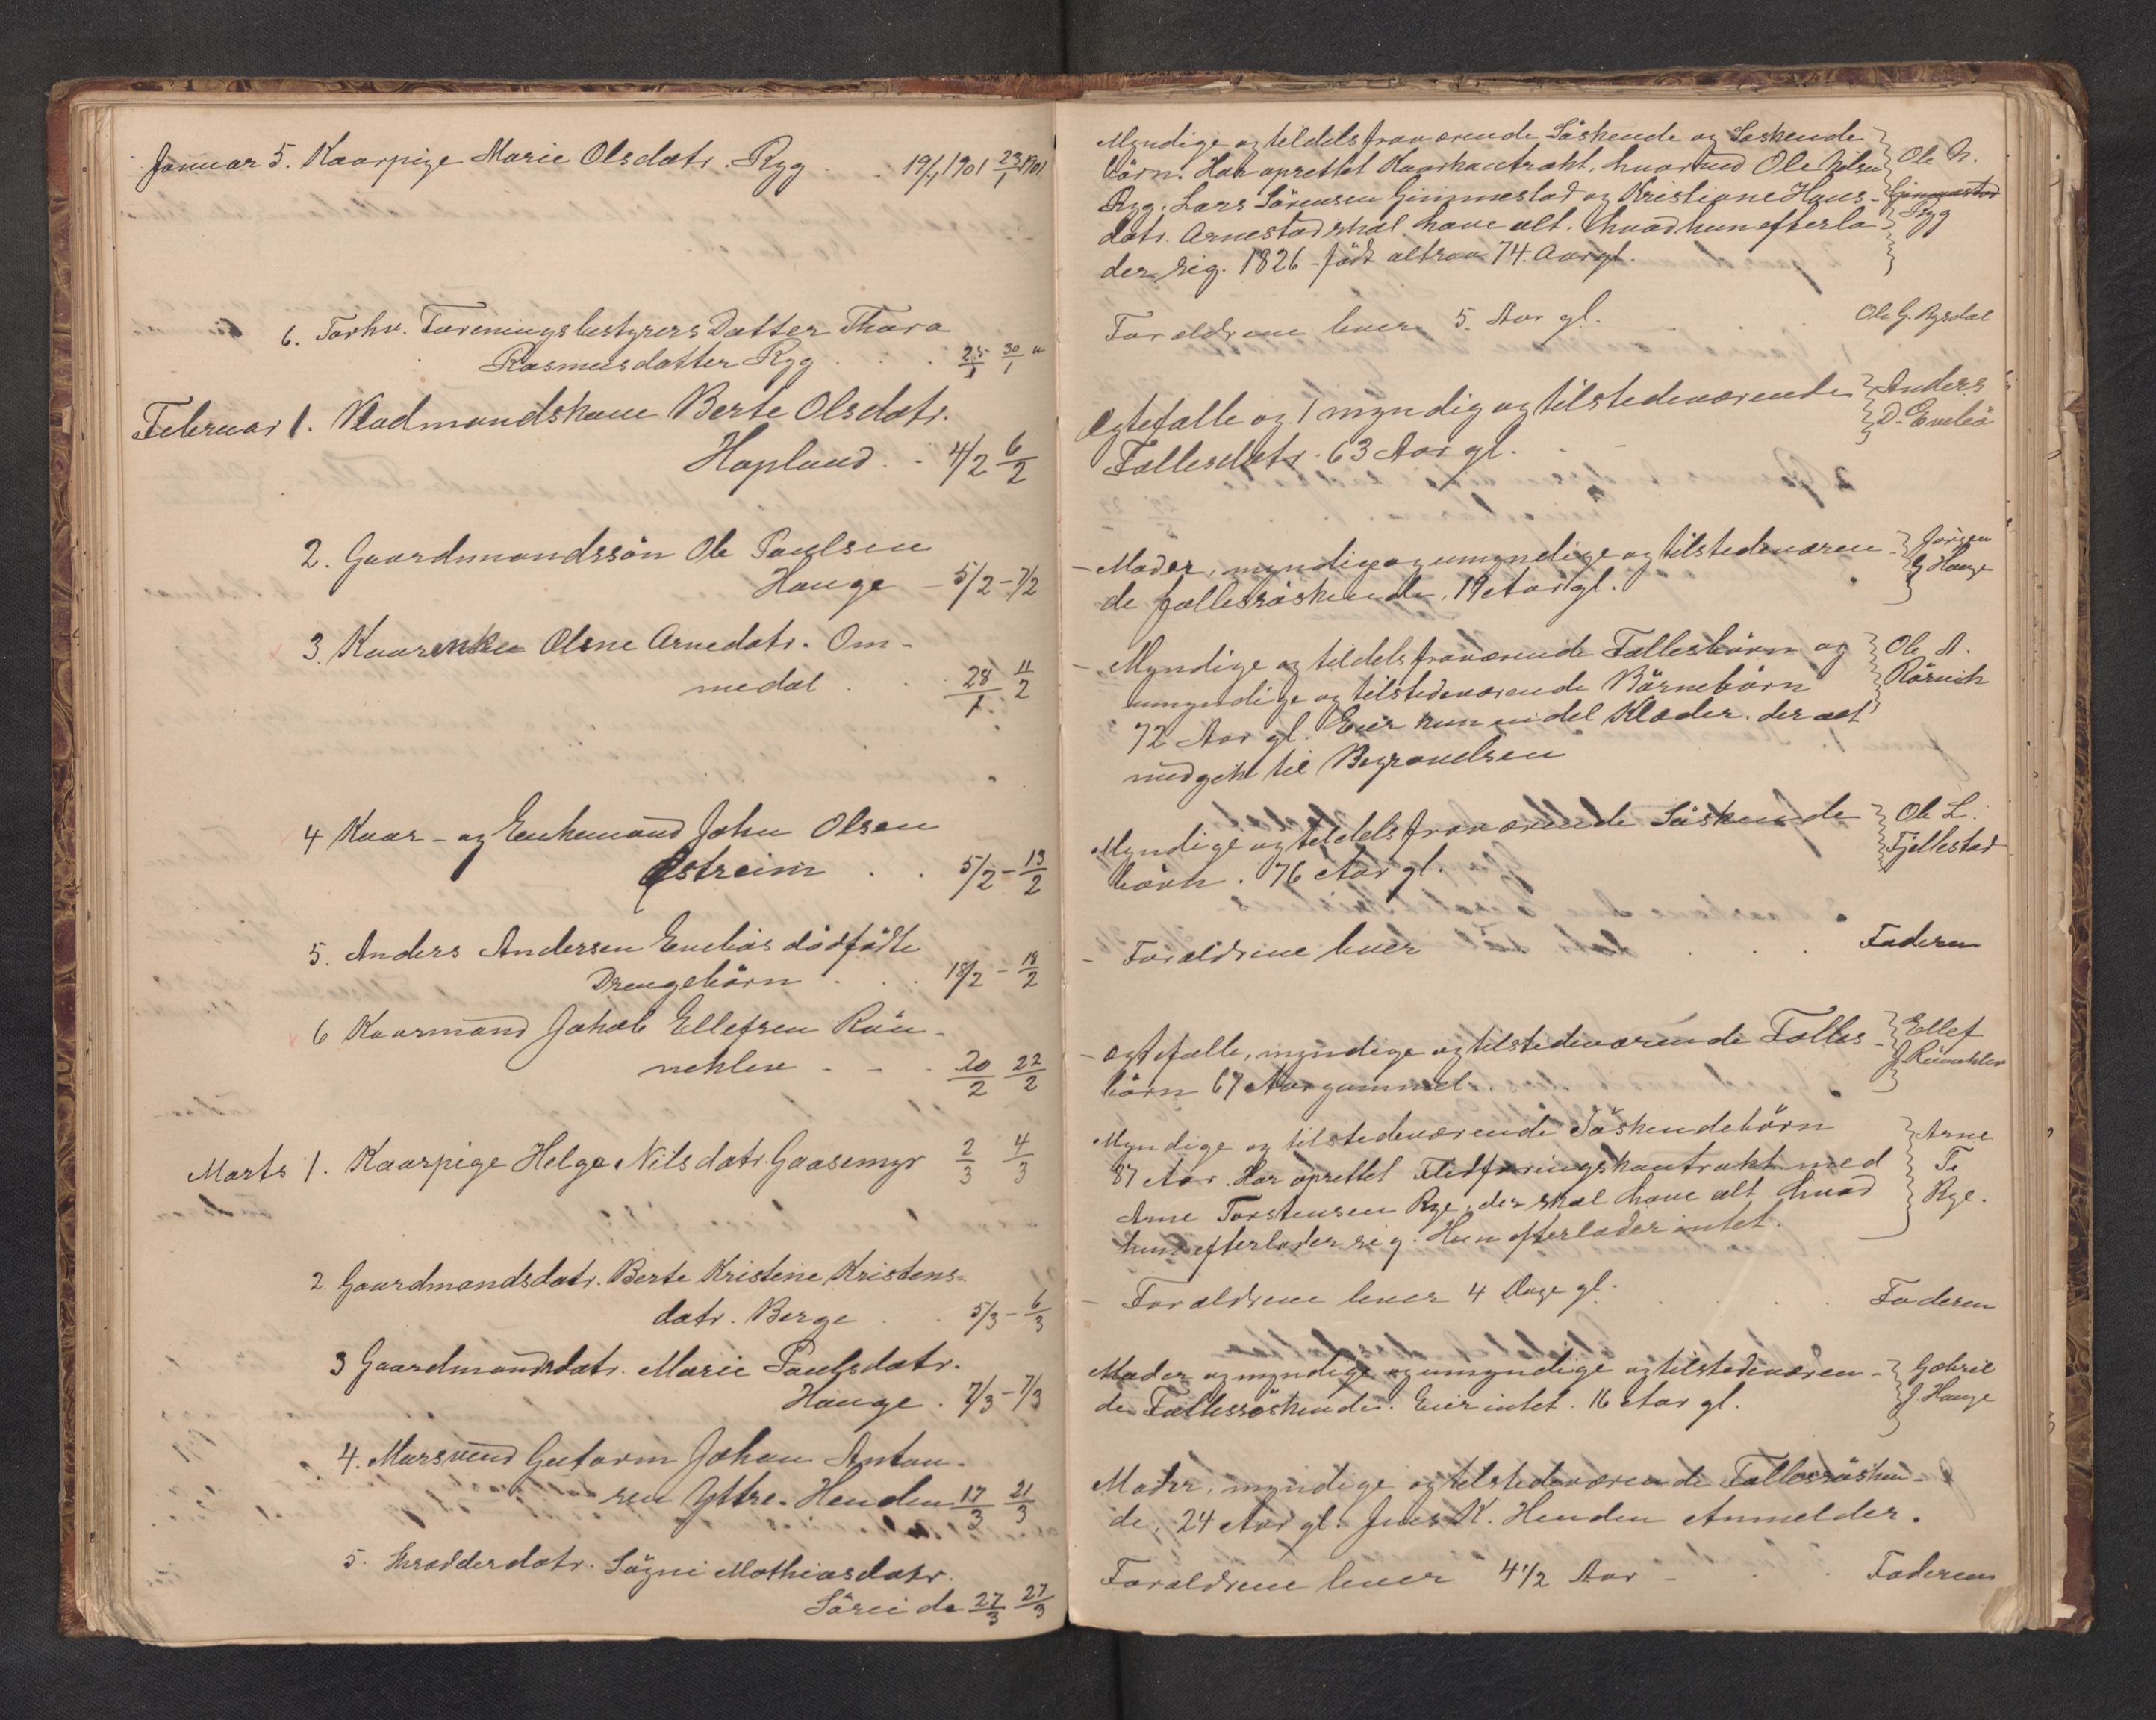 Januar 5. Kaarpige Marie Olsdatr. Ryg . . 19/1 1901 23/1 1901
6. Forhv. Foreningsbestyrers Datter Thora
Rasmusdatter Ryg . . . 25/1 30/1 "
Februar 1. Kadmandskone Berte Olsdatr.
Hopland . - 4/2 6/2
2. Gaardmandssön Ole Paulsen
Hauge - 5/2 - 7/2
3. Kaarenke Oline Arnedatr. Om-
medal . . . 28/1 11/2
4 Kaar- og Enkemand John Olsen
Østreim . . 5/2 - 13/2
5. Anders Andersen Enebøs dødfødte
Drengebörn . . . 18/2 - 18/2
6 Kaarmand Jakob Ellefsen Røn-
neklev - - . 20/2 22/2
Marts 1. Kaarpige Helge Nilsdatr. Gaasemyr 2/3 4/3
2. Gaardmandsdatr. Berte Kristene Kristens-
datr. Berge . . 5/3 - 6/3
3 Gaardmandsdatr. Marie Paulsdatr.
Hauge . 7/3 - 7/3
4. Mursvend Gutorm Johan Anton-
sen Yttre-Henden 17/3 21/3
5. Skrædderdatr. Sögni Mathiasdatr.
Söreide 27/3 27/3
Myndige og tildels fraværende Söskende og Söskende
börn. Har oprettet Kaarkontrakt, hvorved Ole Nilsen
Ryg, Lars Sörensen Gimmestad og Kristiane Hans-
datr. Arnestad skal have alt, hvad hun efterla-
der sig. 1826 født altsaa 74 Aar gl.
Ole N.
Gimmestad
Ryg
Forældrene lever 5 Aar gl. . . . Ole G. Rysdal
Ægtefælle og 1 myndig og tilstedeværende
Fællesdatr. 63 Aar gl. -
Anders
D. Enebö
- Moder, myndige og umyndige og tilstedeværen-
de fællessöskende. 19 Aar gl.
Jörgen
G Hauge
- Myndige og tildels fraværende Fællesbörn og
umyndige og tilstedeværende Börnebörn
72 Aar gl. Eier kun en del Klæder. der alt
medgik til Begravelsen
Ole A.
Rörvik
Myndige og tildels fraværende Söskende
börn. 76 Aar gl.
Ole L.
Fjellestad
- Forældrene lever . . . Faderen
- Ægtefælle, myndige og tilstedeværende Fælles-
börn 67 Aar gammel.
Ellef
J. Rönneklev
Myndige og tilstedeværende Söskendebörn
87 Aar. Har oprettet Fledföringskontrakt med
Arne Torstensen Rye, der skal have alt hvad
hun efterlader sig. Hun efterlader intet.
Arne
T.
Rye.
- Forældrene lever 4 Dage gl. . . . Faderen
Moder og myndige og umyndige og tilstedeværen-
de Fællessöskende. Eier intet. 16 Aar gl.
Gabriel
J. Hauge
Moder, myndige og tilstedeværende Fællessösken-
de, 24 Aar gl. Jens K. Henden Anmelder.
Forældrene lever 4 1/2 Aar - . . Faderen